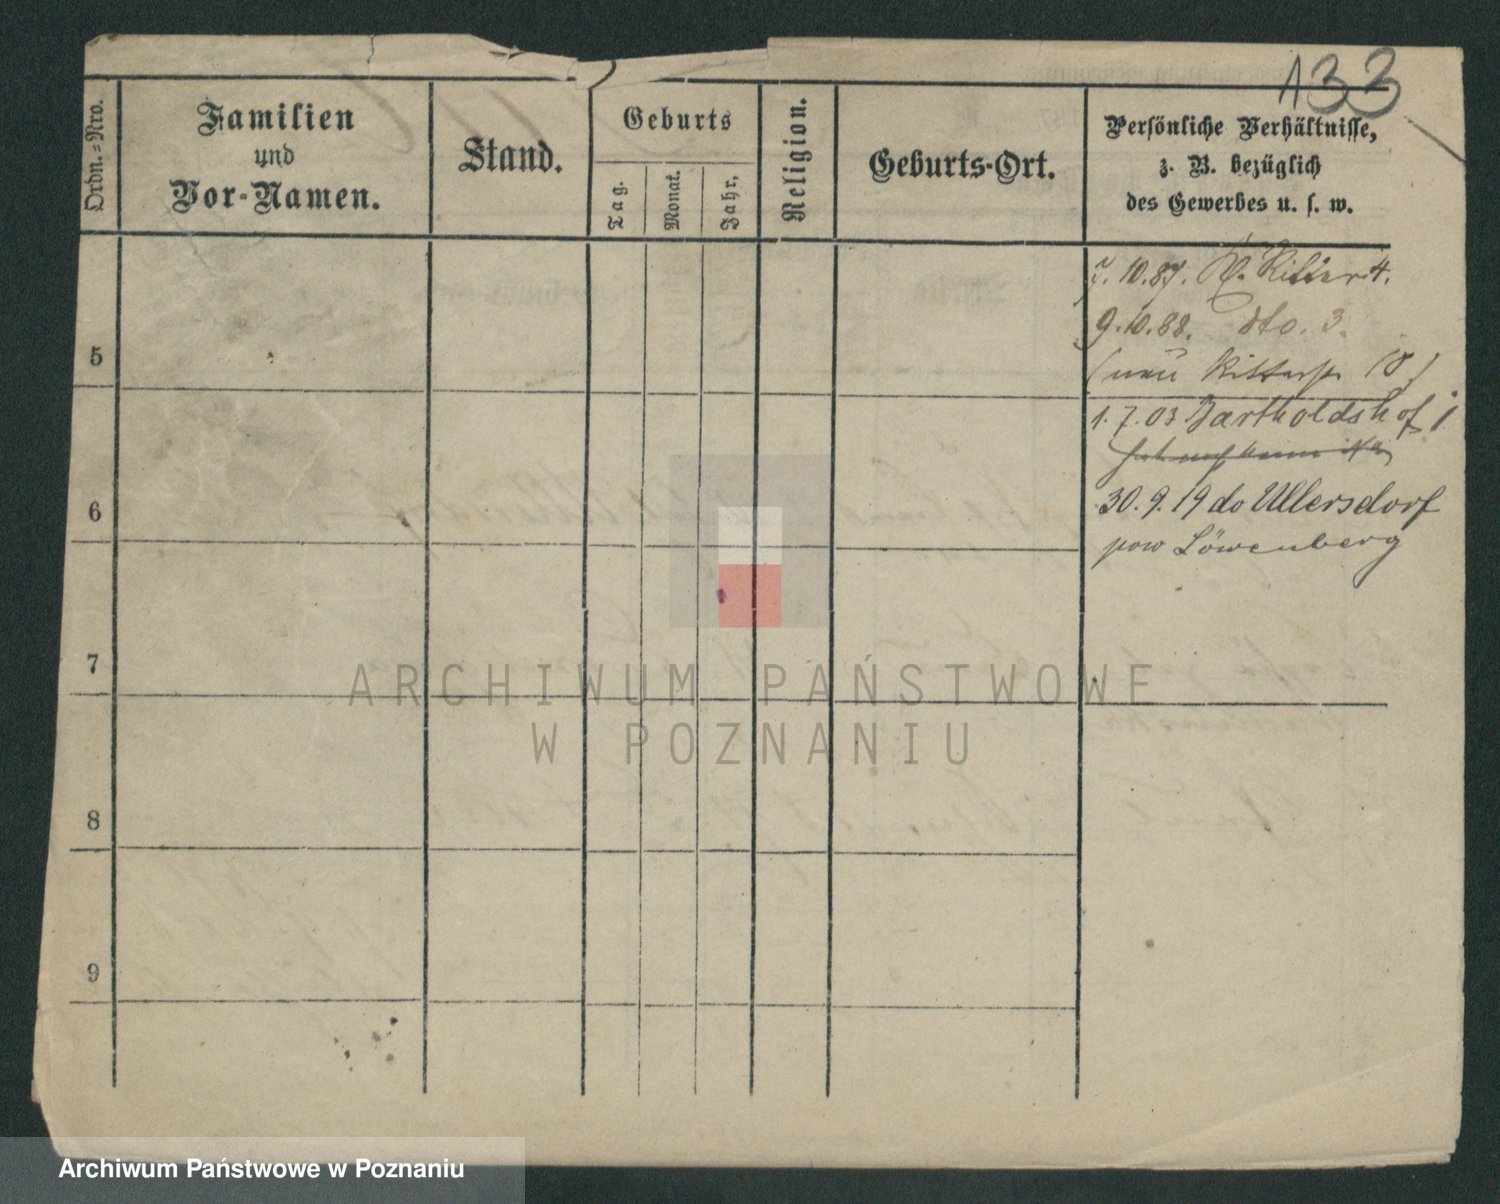 133
Ordn.=Nro.
Familien
und
Vor-Namen.
Stand.
Geburts
Tag.
Monat.
Jahr,
Religion.
Geburts-Ort.
Persönliche Verhältnisse,
z. B. bezüglich
des Gewerbes u. s. w.
10.87. Ritter 4.
9.10.88. dto. 3.
(neu Ritterstr 18)
1.7.03 Bartholdshof 1
30.9.19 do Ullersdorf
pow Löwenberg
5
6
7
8
9
ARCHIWUM PAŃSTWOWE
W POZNANIU
Archiwum Państwowe w Poznaniu